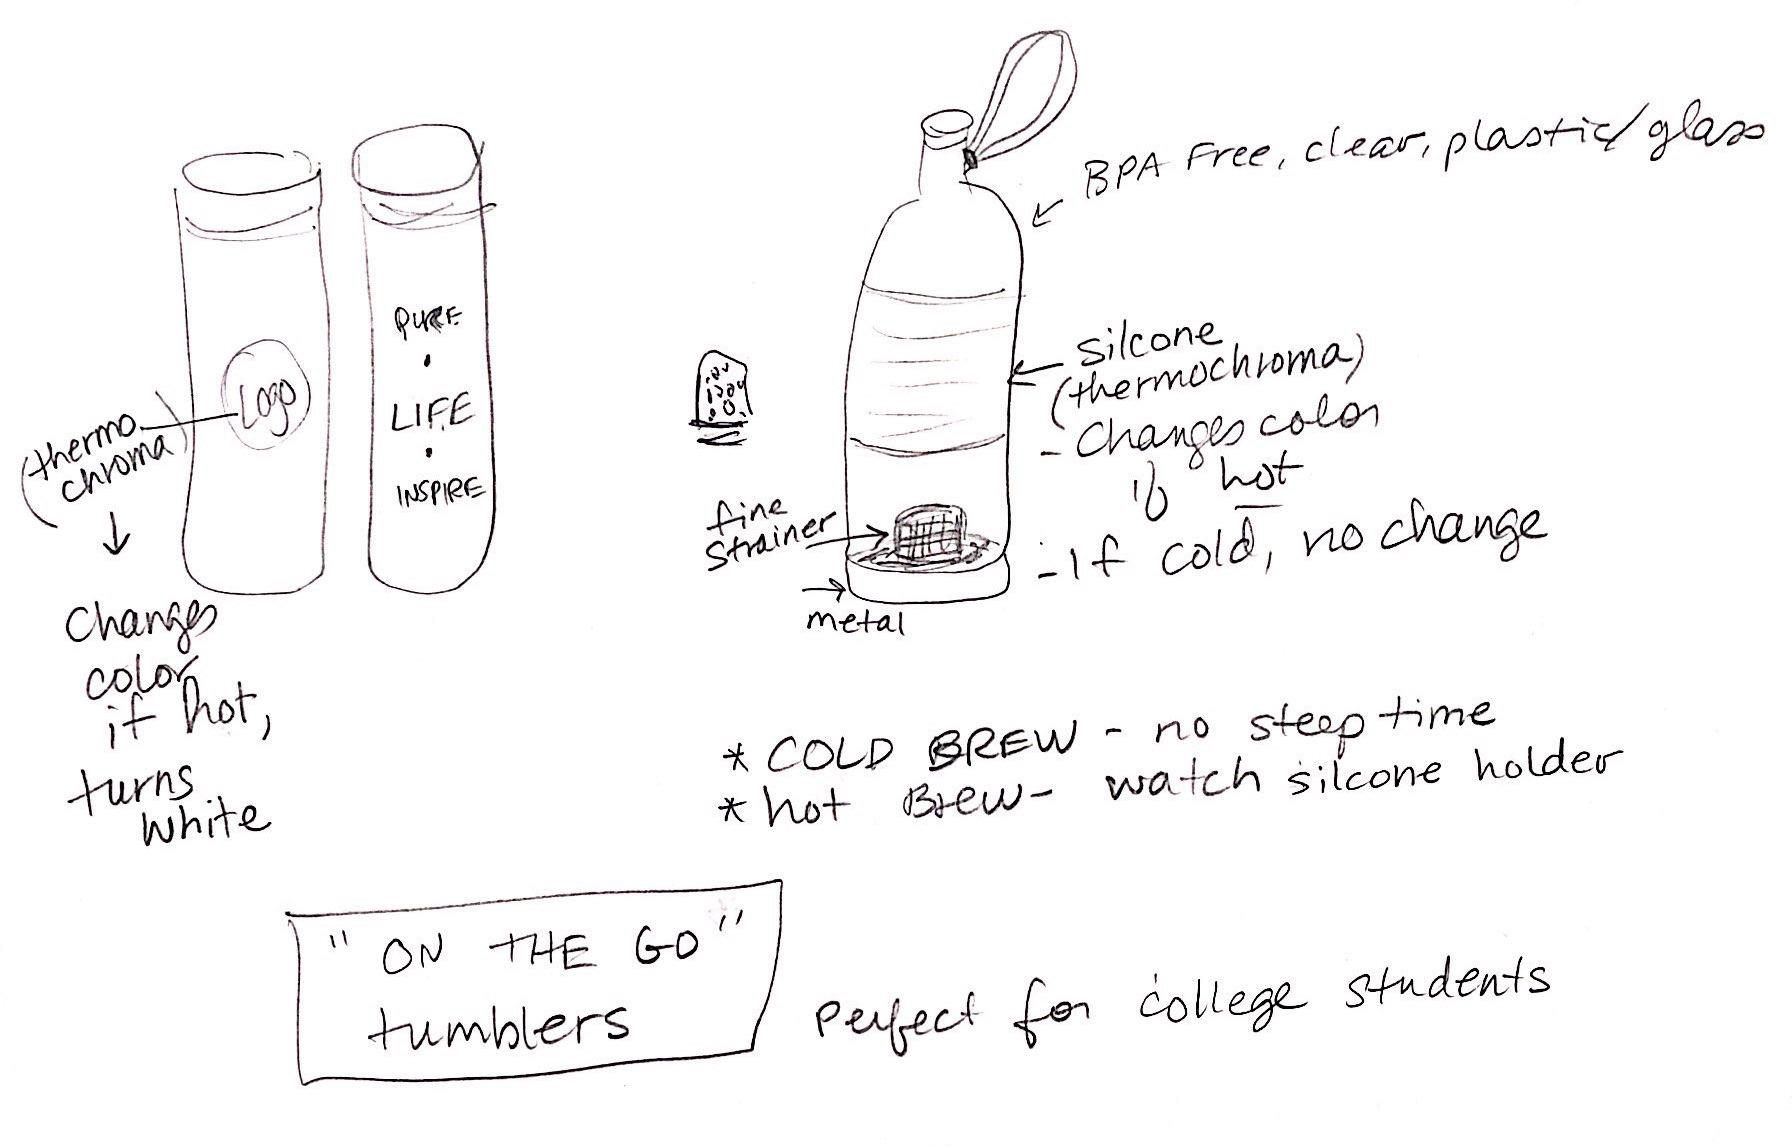 Logo
(thermo
chroma)
Changes
color
if hot,
turns
white
PURE
•
LIFE
•
INSPIRE
BPA Free, clear, plastic/glass
silcone
(thermochroma)
- Changes color
if hot
- If cold, no change
fine
strainer
metal
* COLD BREW - no steep time
* hot Brew - watch silcone holder
"ON THE GO"
tumblers
Perfect for college students